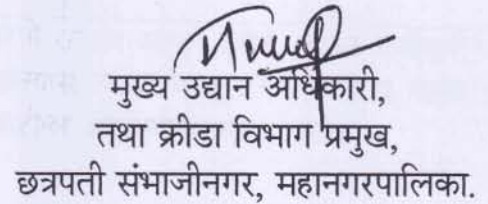 मुख्य उद्यान अधिकारी,
तथा क्रीडा विभाग प्रमुख,
छत्रपती संभाजीनगर, महानगरपालिका.